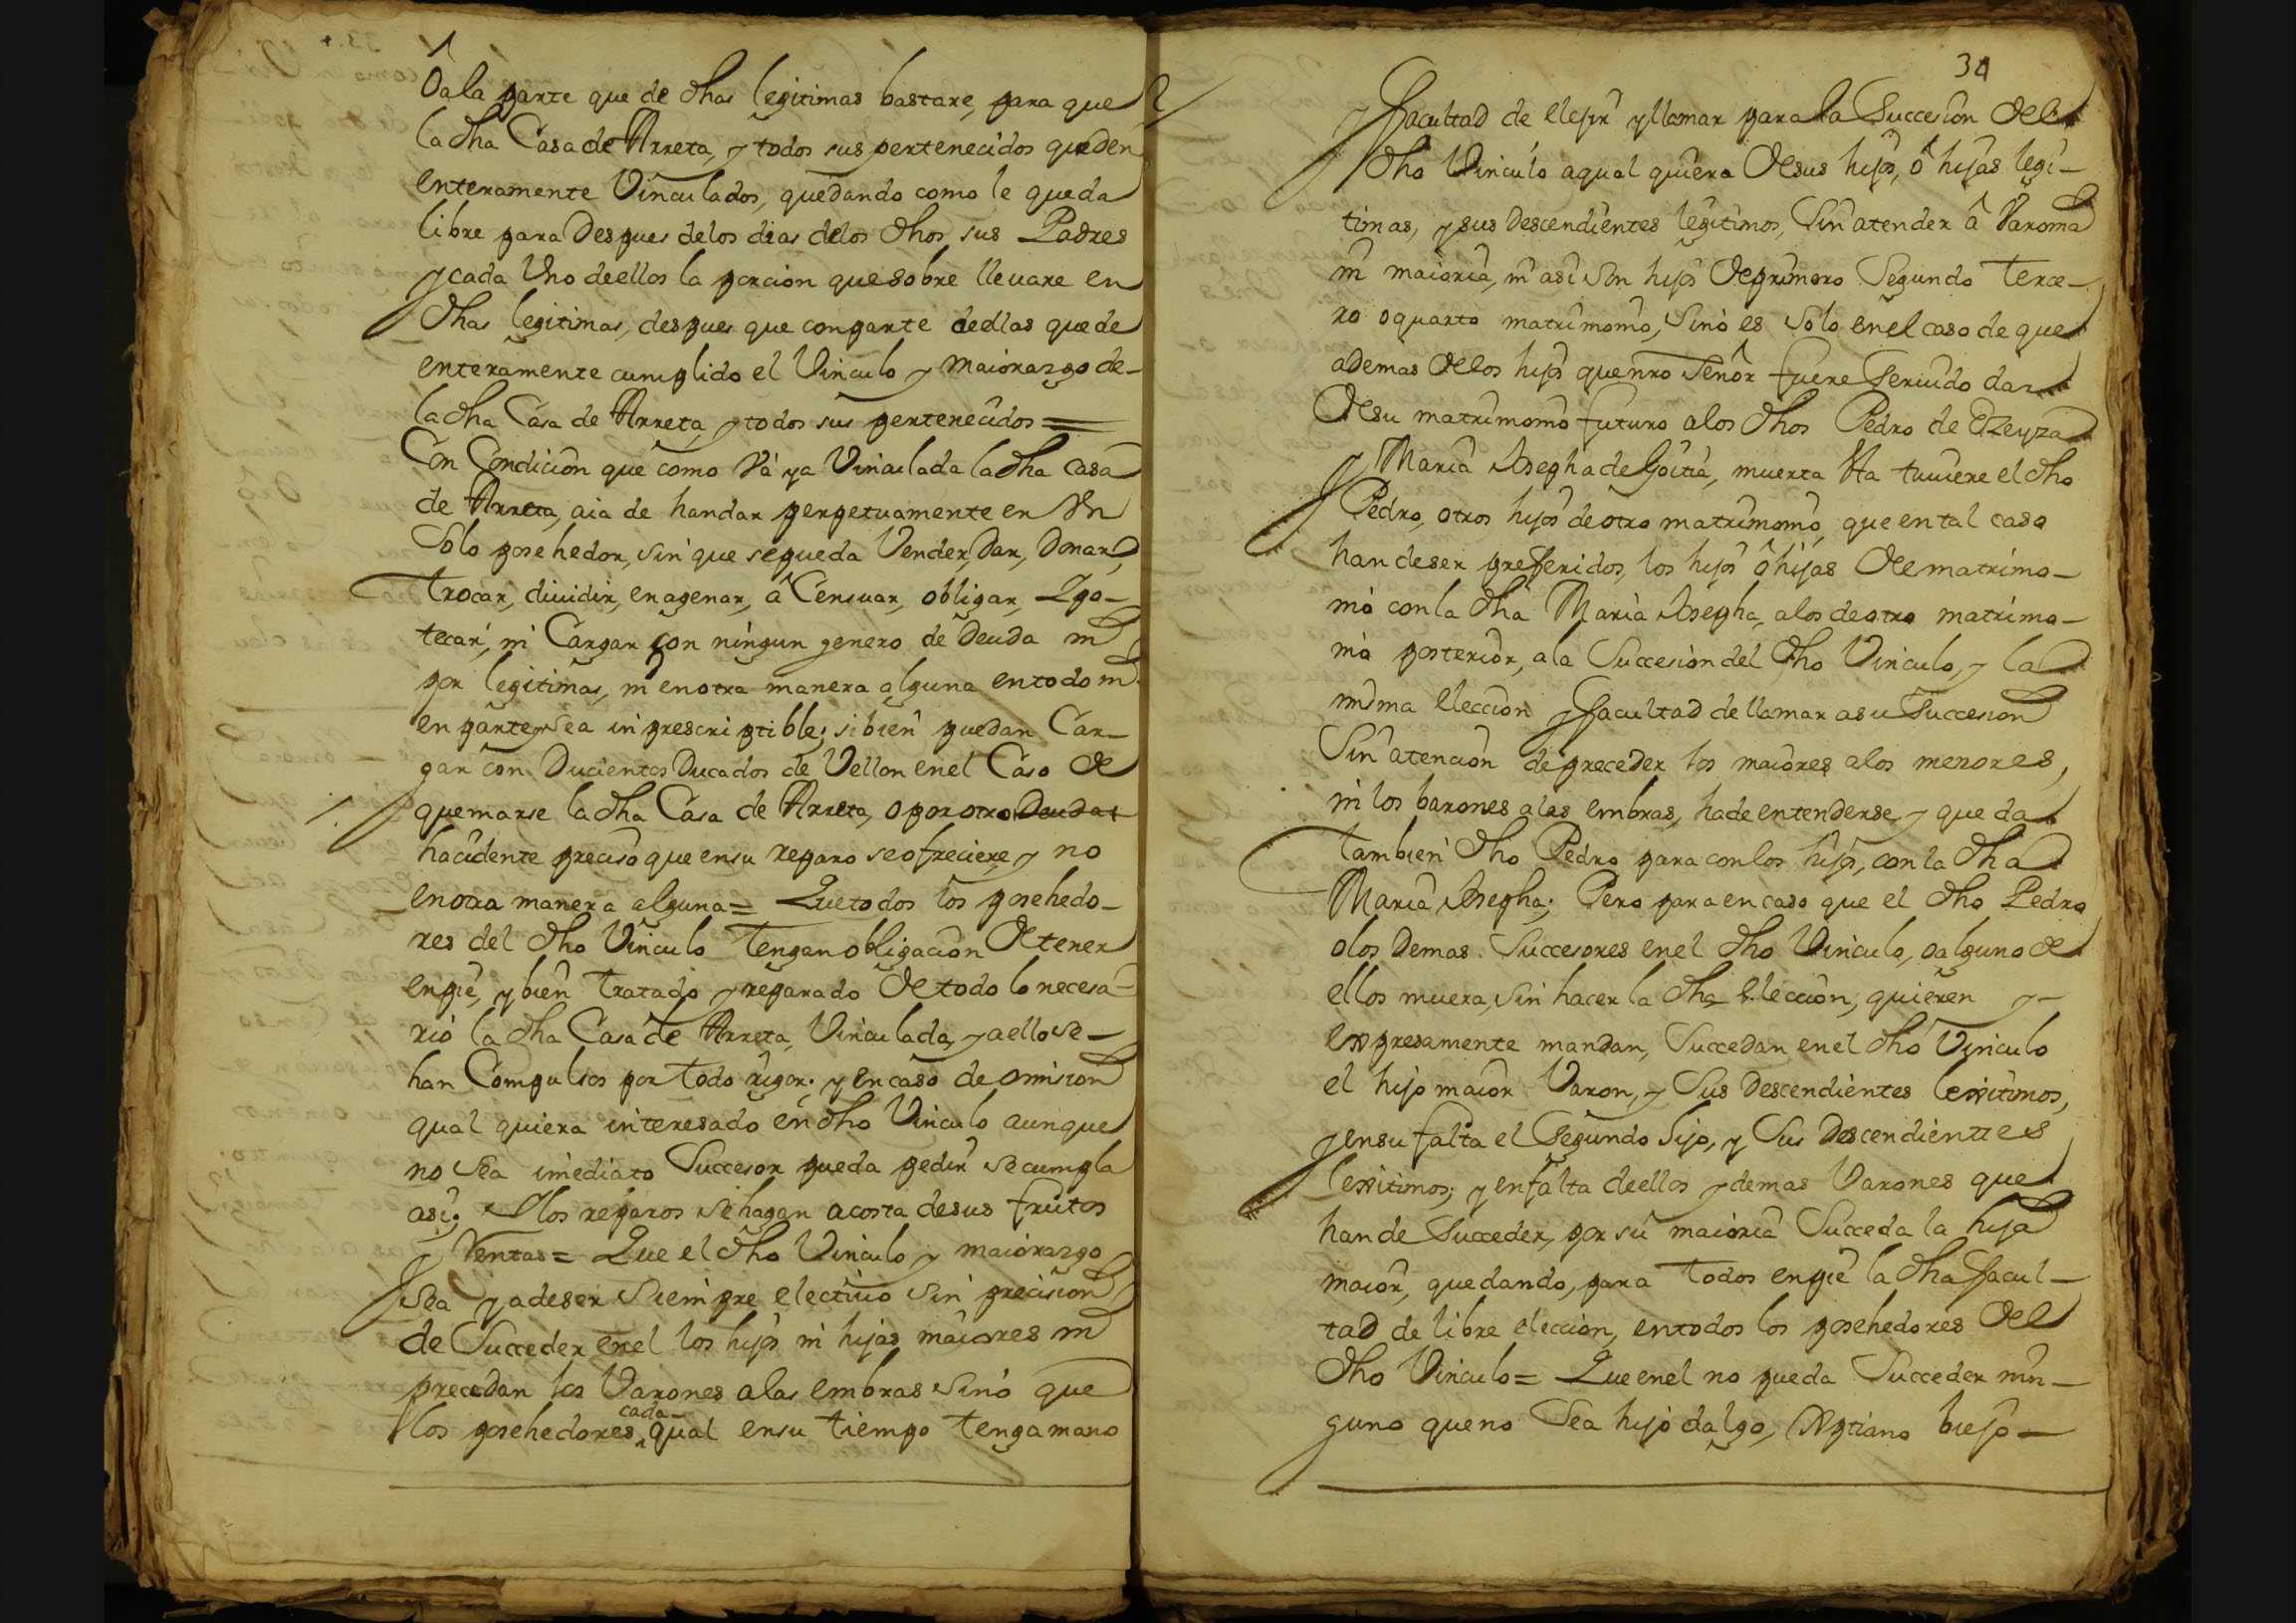 Ô a la parte que de dhas legitimas bastare, para que
la dha Casa de Arreta, y todos sus pertenecidos queden
enteramente Vinculados, quedando como le queda
libre para Despues de los dias de los dhos sus Padres
y cada Vno de ellos la porcion que sobre llevare en
dhas legitimas, despues que con parte de ellas quede
enteramente cumplido el Vinculo y maiorazgo de-
la dha Casa de Arreta, y todos sus pertenecidos =
Con Condicion que como Vá ya Vinculada la dha casa
de Arreta, aia de handar perpetuamente en Vn
Solo posehedor, sin que se pueda Vender, Dar, Donar,
trocar, diuidir, enagenar, â Censuar, obligar, Ypo-
tecar, ni Cargar con ningun genero de Deuda ni
por legitimas, ni en otra manera alguna en todo ni
en parte, y sea inprescriptible; si bien puedan Car-
gar con Ducientos Ducados de Vellon en el Caso de
quemarse la dha Casa de Arreta, o por otro Deudas
hacidente preciso que en su reparo se ofreciere, y no
en otra manera alguna = Que todos los posehedo-
res del dho Vinculo tengan obligacion de tener
en pie, y bien tratado y reparado de todo lo necesa-
rio la dha Casa de Arreta, Vinculada, y a ello se-
han Compulsos por todo rigor; y en caso de omision
qual quiera interesado en dho Vinculo aunque
no sea imediato Succesor pueda pedir se cumpla
asi; Y los reparos se hagan a costa de sus frutos
y Rentas = Que el dho Vinculo y maiorazgo
sea y a de ser Siempre electiuo sin precision
de Succeder en el los hijos ni hijas maiores ni
precedan los Varones a las embras sino que
cada
los posehedores, qual en su tiempo tenga mano
34
y facultad de elejir y llamar para la Succesion del
dho Vinculo a qual quiera de sus hijos, ô hijas legi-
timas, y sus Descendientes legitimos, Sin atender â Varonia
ni maioria, ni asi son hijos de primero Segundo terce-
ro o quarto matrimonio, Sino es Solo en el caso de que
ademas de los hijos que nro Señor fuere Seruido dar
de su matrimonio futuro a los dhos Pedro de
y Maria Josepha de Goitia, muerta Sta tuuiere el dho
Pedro, otros hijos de otro matrimonio, que en tal caso
han de ser preferidos, los hijos ô hijas de matrimo-
nio con la dha Maria Josepha, a los de otro matrimo-
nio posterior, a la Succesion del dho Vinculo, y la
misma eleccion y facultad de llamar a su Succesion
Sin atencion de preceder los maiores a los menores,
ni los barones a las embras, ha de entenderse, y queda
tambien dho Pedro para con los hijos, con la dha
Maria Josepha; Pero para en caso que el dho Pedro
o los Demas Succesores en el dho Vinculo, o alguno de
ellos muera, sin hacer la dha eleccion, quieren y-
expresamente mandan, Succedan en el dho Vinculo
el hijo maior Varon, y Sus Descendientes lexitimos,
y en su falta el Segundo hijo, y Sus Descendienttes
lexitimos; y en falta de ellos y demas Varones que
han de Succeder, por su maioria Succeda la hija
maior, quedando, para todos en pie la dha facul-
tad de libre eleccion, en todos los posehedores del
dho Vinculo = Que en el no pueda Succeder nin-
guno que no Sea hijo dalgo, Xptiano biejo-